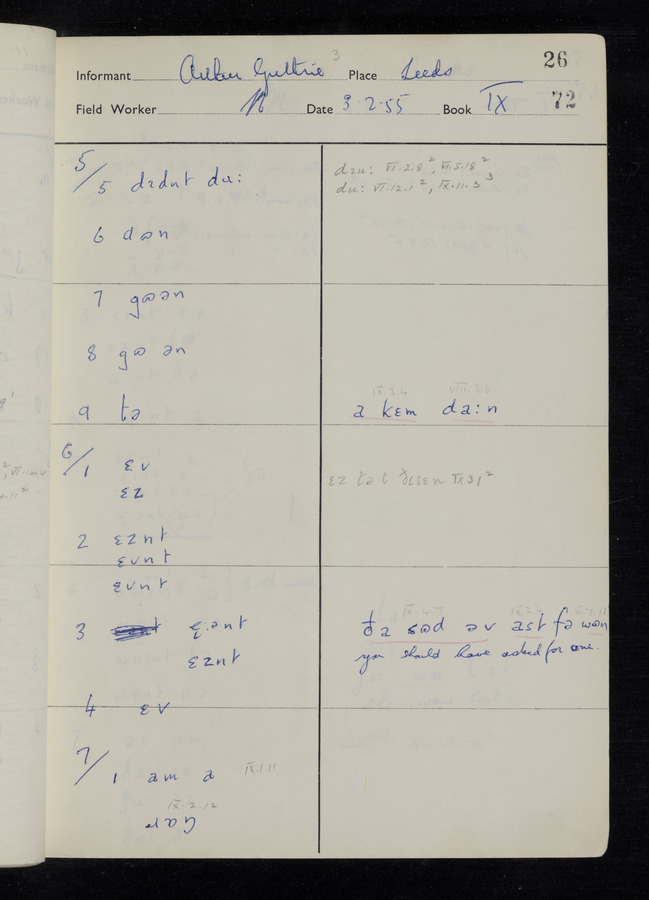 26
Informant Arthur Guthrie 3 Place Leeds
Field Worker Date 3.2.55 Book IX 72
5/5 dɪdnt da:
dɪu: VI.2.8², VI.5.18²
du: VI.12.1², IX.11.3³
6 dʊn
7 gʊən
8 gʊ ən
9 tə
IX.3.4 VIII.3.6
a kɛm da:n
6/1 ɛv
ɛz
2 ɛznt
ɛvnt
ɛvnt
3 ɛ:ənt
ɛznt
IX.4.5 IX.2.4
ða sʊd əv ast fə wɒn
you should have asked for one.
4 ɛv
7/1 am a IX.1.11
IX.2.12